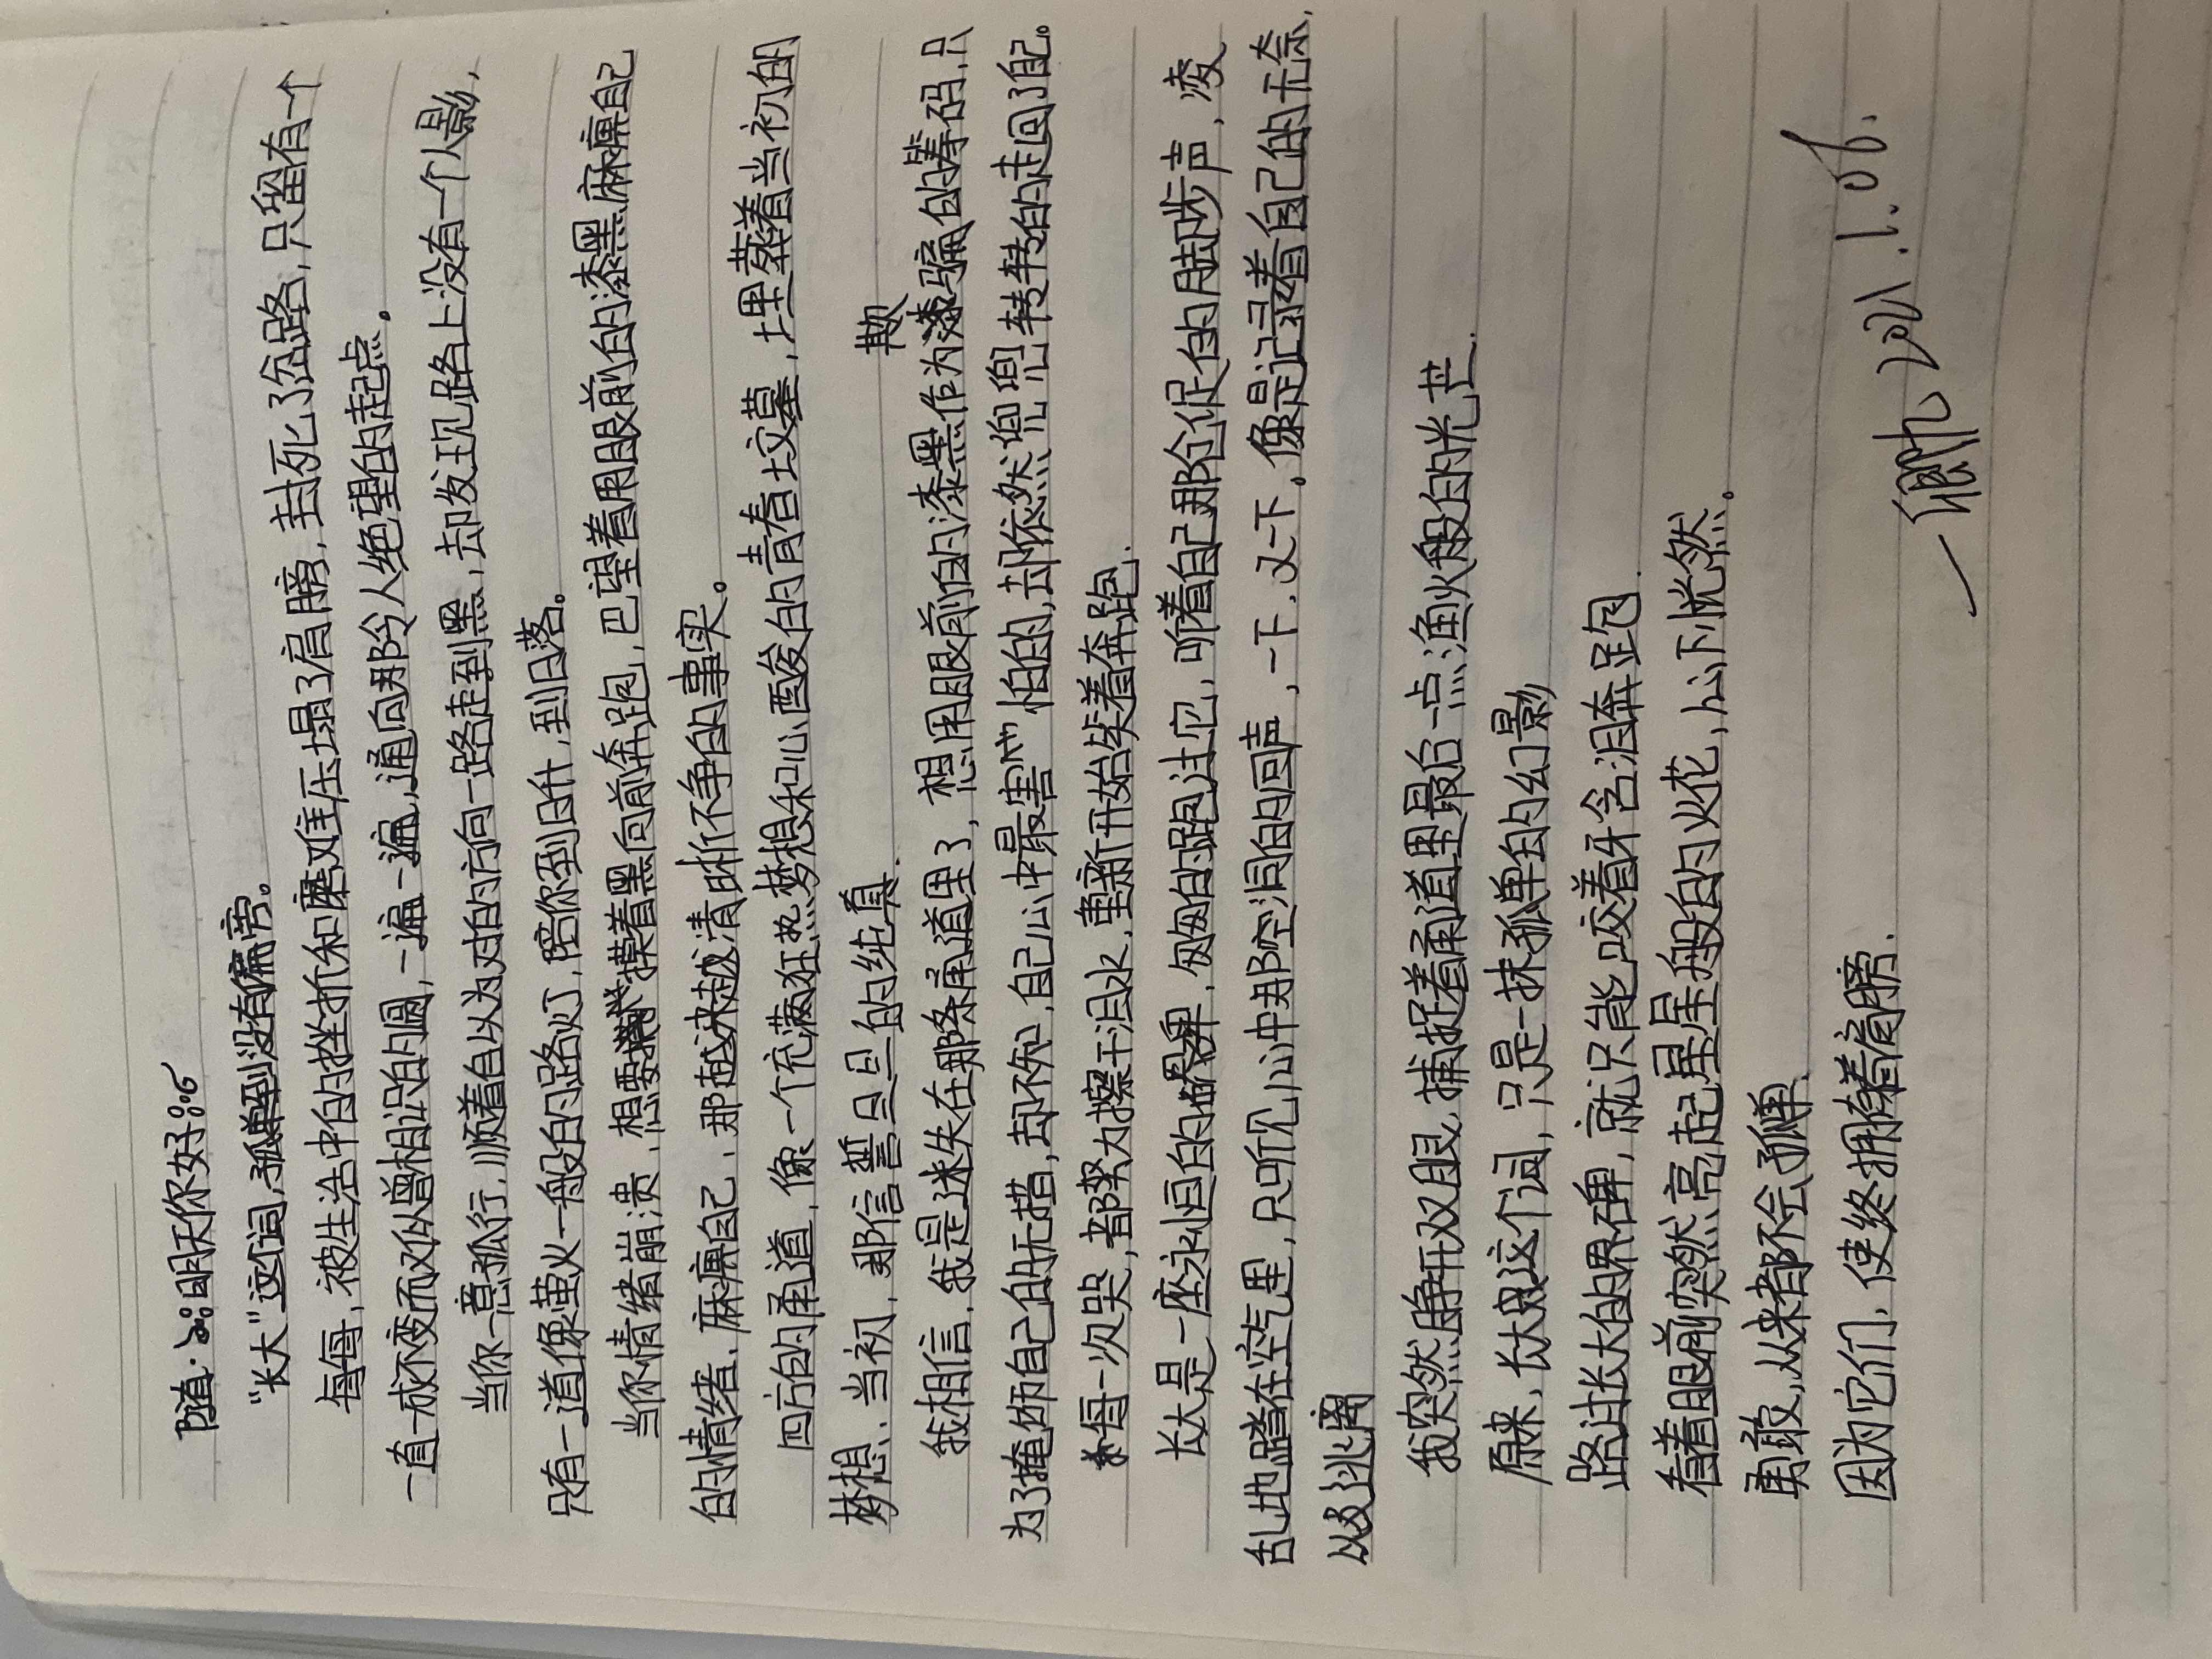 随·明天你好
“长大”这词，孤单到没有偏旁。
每每，被生活中的挫折和磨难压塌了肩膀，封死了岔路，只留有一个
一直一成不变而又似曾相识的圆，一遍一遍，通向那令人绝望的起点。
当你一意孤行，顺着自以为对的方向一路走到黑，却发现路上没有一个人影，
只有一道像萤火一般的路灯，陪你到日升，到日落。
当你情绪崩溃，想要摸着黑向前奔跑，巴望着用眼前的漆黑麻痹自己
的情绪，麻痹自己，那越来越清晰不争的事实。
四方的甬道，像一个充满狂热梦想和心酸的青春坟墓，埋葬着当初的
梦想、当初，那信誓旦旦的纯真.
我相信，我是迷失在那条甬道里了，想用眼前的漆黑作为欺骗的筹码，只
为了掩饰自己的无措，却不知，自己心中最害怕的，却依然兜兜转转的走回了自己。
每一次哭，都努力擦干泪水，重新开始笑着奔跑.
长大是一座永恒的界碑，匆匆的跑过它，听着自己那仓促的脚步声，凌
乱地踏在空气里，只听见心中那空洞的回声，一下，又一下，像是记录着自己的无奈，
以及逃离
我突然睁开双眼，捕捉着甬道里最后一点渔火般的光芒.
原来，长大这个词，只是一抹孤单的幻影
路过长大的界碑，就只能咬着牙含泪奔跑.
看着眼前突然亮起星星般的火花，心下恍然。
勇敢，从来都不会孤单.
因为它们，使终拥有着肩膀.
2021.1.06.